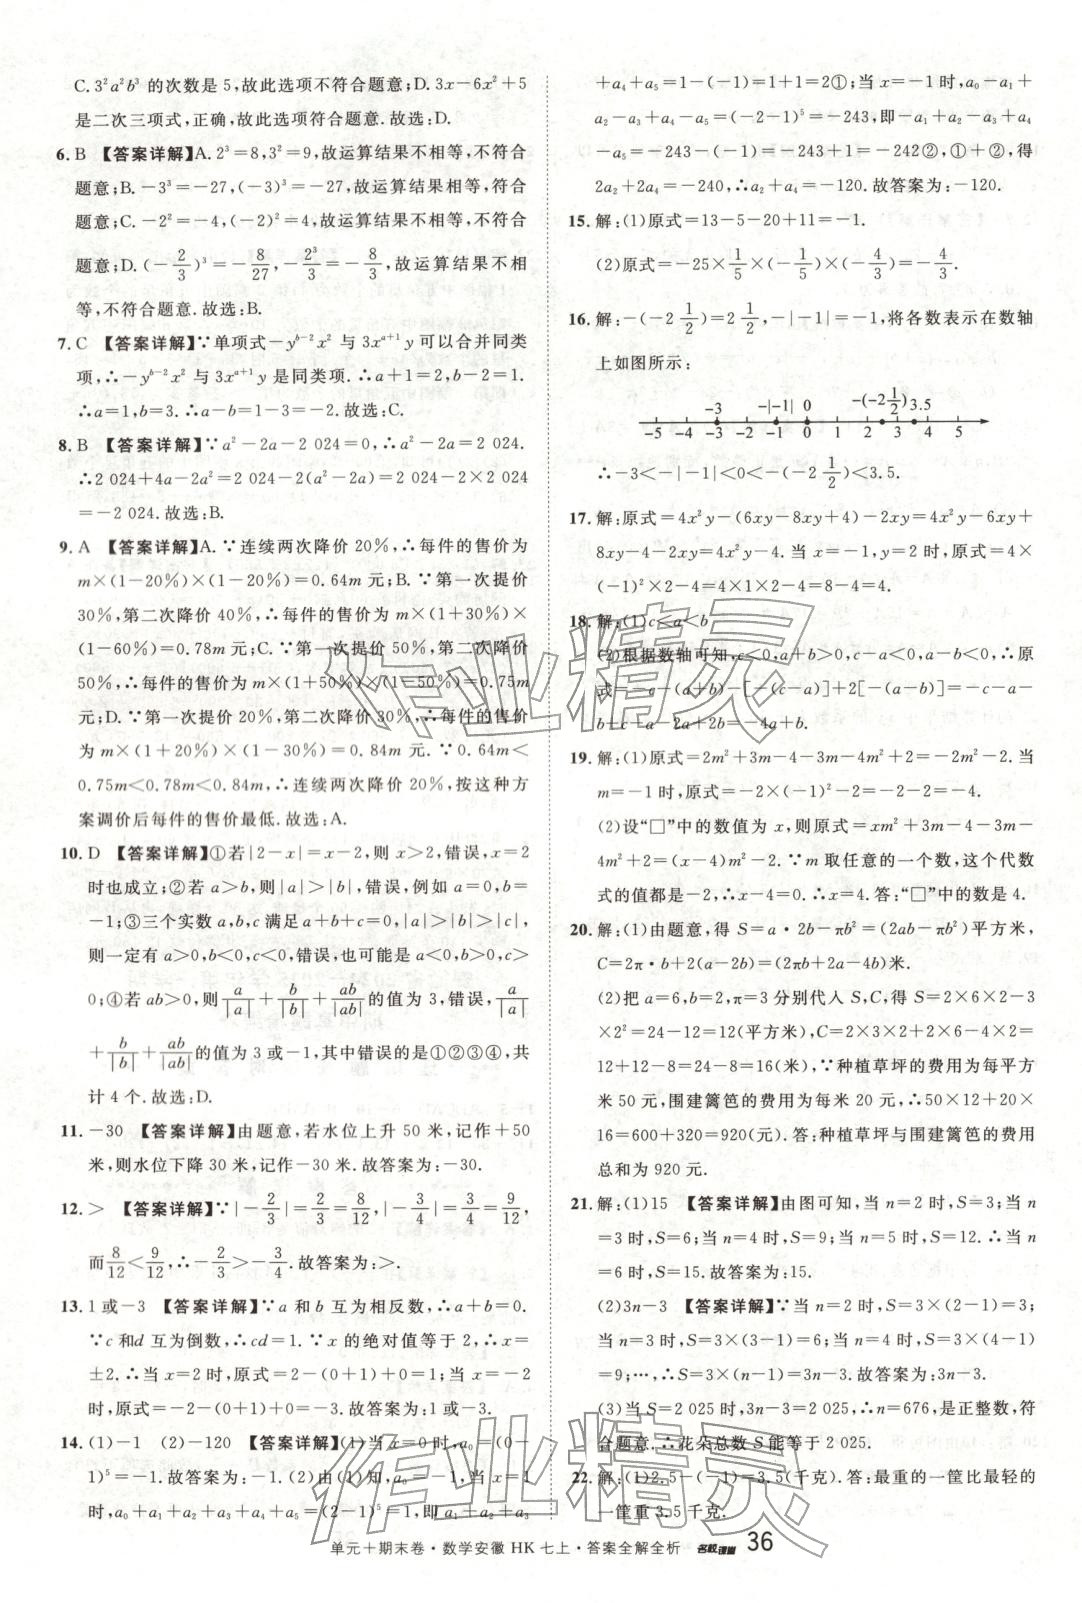 C. 3²a²b³ 的次数是 5,故此选项不符合题意;D. 3x-6x²+5
是二次三项式,正确,故此选项符合题意.故选:D.
6. B 【答案详解】A. 2³=8,3²=9,故运算结果不相等,不符合
题意;B. -3³=-27,(-3)³=-27,故运算结果相等,符合
题意;C. -2²=-4,(-2)²=4,故运算结果不相等,不符合
题意;D. (-2/3)³=-8/27,-2³/3=-8/3,故运算结果不相
等,不符合题意.故选:B.
7. C 【答案详解】∵单项式-y^(b-2)x² 与 3x^(a+1)y 可以合并同类
项,∴-y^(b-2)x² 与 3x^(a+1)y 是同类项.∴a+1=2,b-2=1.
∴a=1,b=3.∴a-b=1-3=-2.故选:C.
8. B 【答案详解】∵a²-2a-2 024=0,∴a²-2a=2 024.
∴2 024+4a-2a²=2 024-2(a²-2a)=2 024-2×2 024
=-2 024.故选:B.
9. A 【答案详解】A.∵连续两次降价 20%,∴每件的售价为
m×(1-20%)×(1-20%)=0.64m 元;B.∵第一次提价
30%,第二次降价 40%,∴每件的售价为 m×(1+30%)×
(1-60%)=0.78m元;C.∵第一次提价 50%,第二次降价
50%,∴每件的售价为 m×(1+50%)×(1-50%)=0.75m
元;D.∵第一次提价 20%,第二次降价 30%,∴每件的售价
为 m×(1+20%)×(1-30%)=0.84m 元.∵0.64m<
0.75m<0.78m<0.84m,∴连续两次降价 20%,按这种方
案调价后每件的售价最低.故选:A.
10. D 【答案详解】①若|2-x|=x-2,则 x>2,错误,x=2
时也成立;②若 a>b,则|a|>|b|,错误,例如 a=0,b=
-1;③三个实数 a,b,c 满足 a+b+c=0,|a|>|b|>|c|,
则一定有 a>0,b<0,c<0,错误,也可能是 a<0,b>0,c>
0;④若 ab>0,则a/|a|+b/|b|+ab/|ab|的值为 3,错误,a/|a|
+b/|b|+ab/|ab|的值为 3 或-1,其中错误的是①②③④,共
计 4 个.故选:D.
11. -30 【答案详解】由题意,若水位上升 50 米,记作+50
米,则水位下降 30 米,记作-30 米.故答案为:-30.
12. > 【答案详解】∵|-2/3|=2/3=8/12,|-3/4|=3/4=9/12,
而8/12<9/12,∴-2/3>-3/4.故答案为:>.
13. 1 或-3 【答案详解】∵a 和 b 互为相反数,∴a+b=0.
∵c 和d 互为倒数,∴cd=1.∵x 的绝对值等于 2,∴x=
±2.∴当 x=2 时,原式=2-(0+1)+0=1;当 x=-2
时,原式=-2-(0+1)+0=-3.故答案为:1 或-3.
14. (1)-1 (2)-120 【答案详解】(1)当 x=0 时,a₀=(0-
1)⁵=-1.故答案为:-1.(2)由(1)知,a₀=-1,当 x=1
时,a₀+a₁+a₂+a₃+a₄+a₅=(2-1)⁵=1,即 a₁+a₂+a₃
+a₄+a₅=1-(-1)=1+1=2①;当 x=-1 时,a₀-a₁+
a₂-a₃+a₄-a₅=(-2-1)⁵=-243,即-a₁+a₂-a₃+a₄
-a₅=-243-(-1)=-243+1=-242②,①+②,得
2a₂+2a₄=-240,∴a₂+a₄=-120.故答案为:-120.
15. 解:(1)原式=13-5-20+11=-1.
(2)原式=-25×1/5×(-1/5)×(-4/3)=-4/3.
16. 解:-(-2 1/2)=2 1/2,-|-1|=-1,将各数表示在数轴
上如图所示:
-3 -|-1| 0 -(-2 1/2) 3.5
-5 -4 -3 -2 -1 0 1 2 3 4 5
∴-3<-|-1|<0<-(-2 1/2)<3.5.
17. 解:原式=4x²y-(6xy-8xy+4)-2xy=4x²y-6xy+
8xy-4-2xy=4x²y-4.当 x=-1,y=2 时,原式=4×
(-1)²×2-4=4×1×2-4=8-4=4.
18. 解:(1)c<a<b.
(2)根据数轴可知,c<0,a+b>0,c-a<0,a-b<0,∴原
式=-c-(a+b)-[-(c-a)]+2[-(a-b)]=-c-a-
b+c-a-2a+2b=-4a+b.
19. 解:(1)原式=2m²+3m-4-3m-4m²+2=-2m²-2.当
m=-1 时,原式=-2×(-1)²-2=-2-2=-4.
(2)设“□”中的数值为 x,则原式=xm²+3m-4-3m-
4m²+2=(x-4)m²-2.∵m 取任意的一个数,这个代数
式的值都是-2,∴x-4=0.∴x=4.答:“□”中的数是 4.
20. 解:(1)由题意,得 S=a·2b-πb²=(2ab-πb²)平方米,
C=2π·b+2(a-2b)=(2πb+2a-4b)米.
(2)把 a=6,b=2,π=3 分别代人 S,C,得 S=2×6×2-3
×2²=24-12=12(平方米),C=2×3×2+2×6-4×2=
12+12-8=24-8=16(米),∵种植草坪的费用为每平方
米 50 元,围建篱笆的费用为每米 20 元,∴50×12+20×
16=600+320=920(元).答:种植草坪与围建篱笆的费用
总和为 920 元.
21. 解:(1)15 【答案详解】由图可知,当 n=2 时,S=3;当 n
=3 时,S=6;当 n=4 时,S=9;当 n=5 时,S=12;当 n
=6 时,S=15.故答案为:15.
(2)3n-3 【答案详解】当 n=2 时,S=3×(2-1)=3;
当 n=3 时,S=3×(3-1)=6;当 n=4 时,S=3×(4-1)
=9;…,∴S=3×(n-1)=3n-3.故答案为:3n-3.
(3)当 S=2 025 时,3n-3=2 025,∴n=676,是正整数,符
合题意.∴花朵总数 S 能等于 2 025.
22. 解:(1)2.5-(-1)=3.5(千克).答:最重的一筐比最轻的
一筐重 3.5 千克.
作业精灵
作业精灵
单元+期末卷·数学安徽 HK 七上·答案全解全析 名校课堂 36